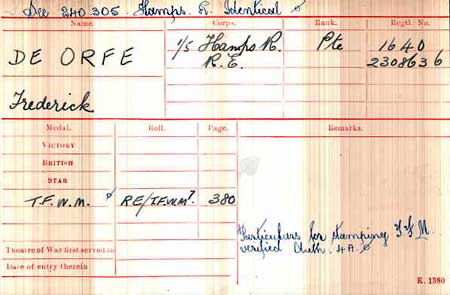 See 240305. Hamps. R. Identical
Name. Corps. Rank. Regtl. No.
DE ORFE 1/5 Hamps R. Pte 1640
R.E. 2308636
Frederick
Medal. Roll. Page. Remarks.
VICTORY
BRITISH
STAR
T.F.W.M. RE/T.F.W.M7. 380
Particulars for stamping T.F.M.
verified Auth. 4A.
Theatre of War first served in
Date of entry therein
K. 1380